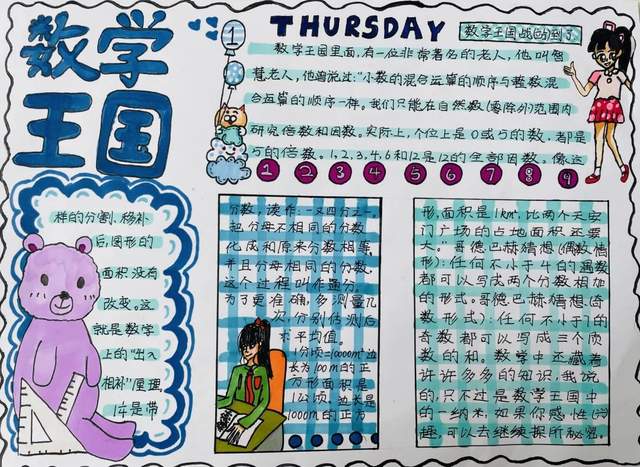 数学
王国
THURSDAY
数学王国战的到了
1
数学王国里面,有一位非常著名的老人,他叫智
慧老人,他曾说过:"小数的混合运算的顺序与整数混
合运算的顺序一样。我们只能在自然数(零除外)范围内
研究倍数和因数。实际上,个位上是0或5的数,都是
5的倍数。1,2,3,4,6和12是12的全部因数,像这
1 2 3 4 5 6 7 8 9
样的分割、移补
后,图形的
面积没有
改变。这
就是数学
上的"出入
相补"原理
1¼是带
分数,读作:一又四分之一。
把分母不相同的分数
化成和原来分数相等,
并且分母相同的分数,
这个过程叫作通分。
为了更准确,多测量几
次,分别估测后
求平均值。
1公顷=10000m²边
长为100m的正
方形面积是
1公顷,边长是
1000m的正方
形,面积是1km²,比两个天安
门广场的占地面积还要
大。"哥德巴赫猜想(偶数情
形):任何不小于4的偶数
都可以写成两个分数相加
的形式。哥德巴赫猜想(奇
数形式):任何不小于7的
奇数都可以写成三个质
数的和。数学中还藏着
许许多多的知识,我说
的,只不过是数学王国中
的一纳米,如果你感性(兴)
趣,可以去继续探所秘密。